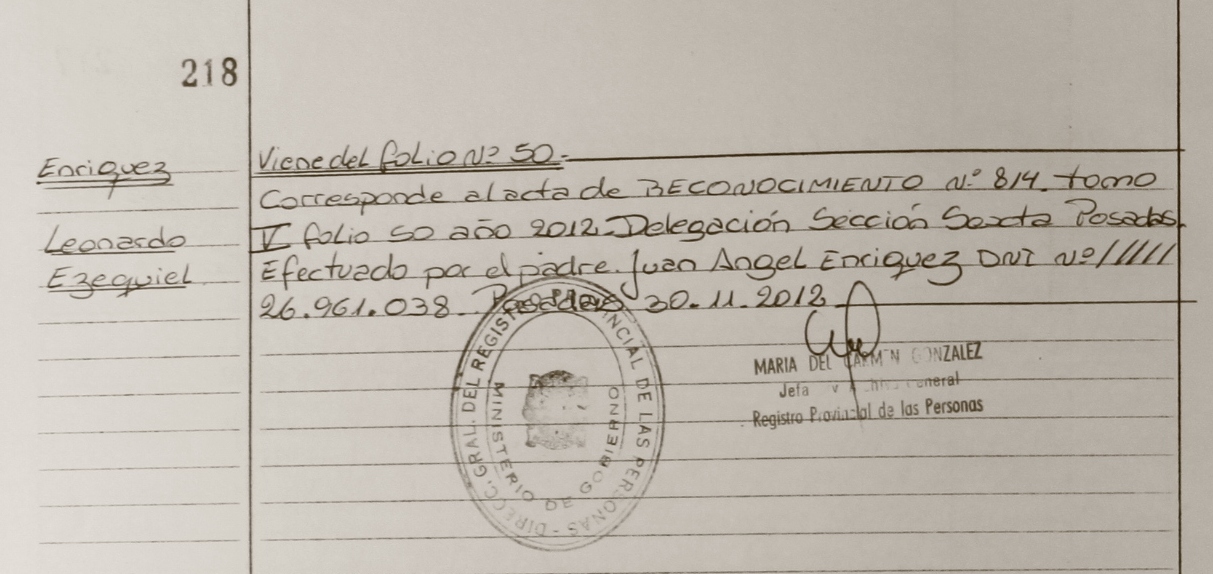 218
Enriquez
Leonardo
Ezequiel
Viene del folio Nº 50.-
Corresponde al acta de RECONOCIMIENTO Nº 814. tomo
V folio 50 año 2012-Delegación Sección Sexta Posadas.
Efectuado por el padre. Juan Angel Enriquez DNI Nº/////
26.961.038. Posadas 30.11.2012
MARIA DEL CARMEN GONZALEZ
Jefa General
Registro Provincial de las Personas
DIRECC. GRAL. DEL REGISTRO PROVINCIAL DE LAS PERSONAS -
MINISTERIO DE GOBIERNO